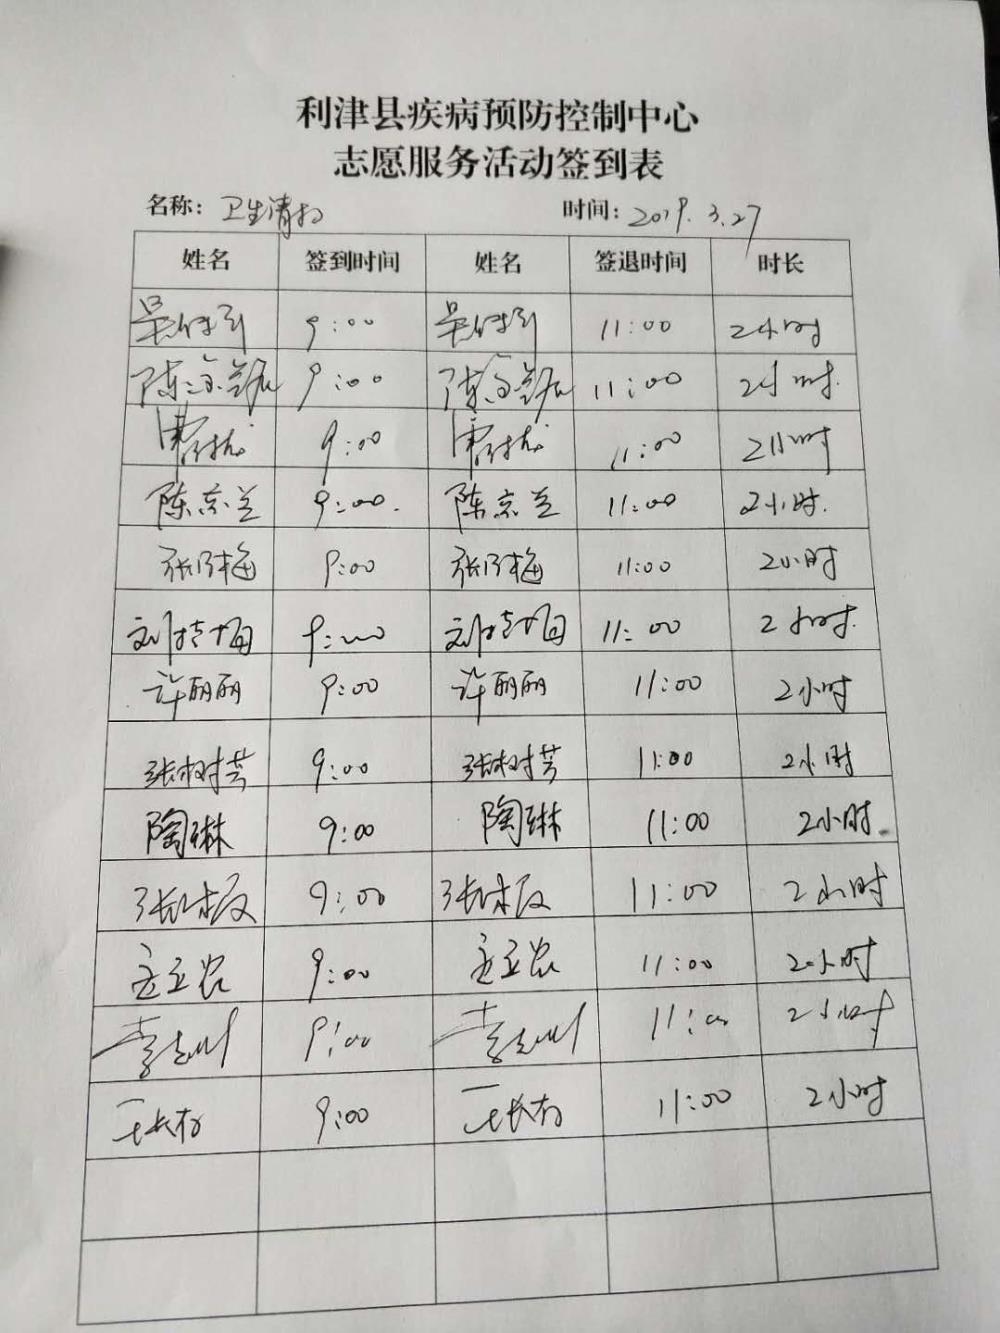 利津县疾病预防控制中心
志愿服务活动签到表
名称：卫生清扫 时间：2019.3.27
姓名 签到时间 姓名 签退时间 时长
9:00 11:00 2小时
9:00 11:00 2小时.
9:00 11:00 2小时
陈京兰 9:00. 陈京兰 11:00 2小时.
张乃梅 9:00 张乃梅 11:00 2小时
刘 9:00 刘 11:00 2小时.
许丽丽 9:00 许丽丽 11:00 2小时
张树芳 9:00 张树芳 11:00 2小时
陶琳 9:00 陶琳 11:00 2小时.
张 9:00 张 11:00 2小时
9:00 11:00 2小时
李 9:00 李 11:00 2小时
9:00 11:00 2小时